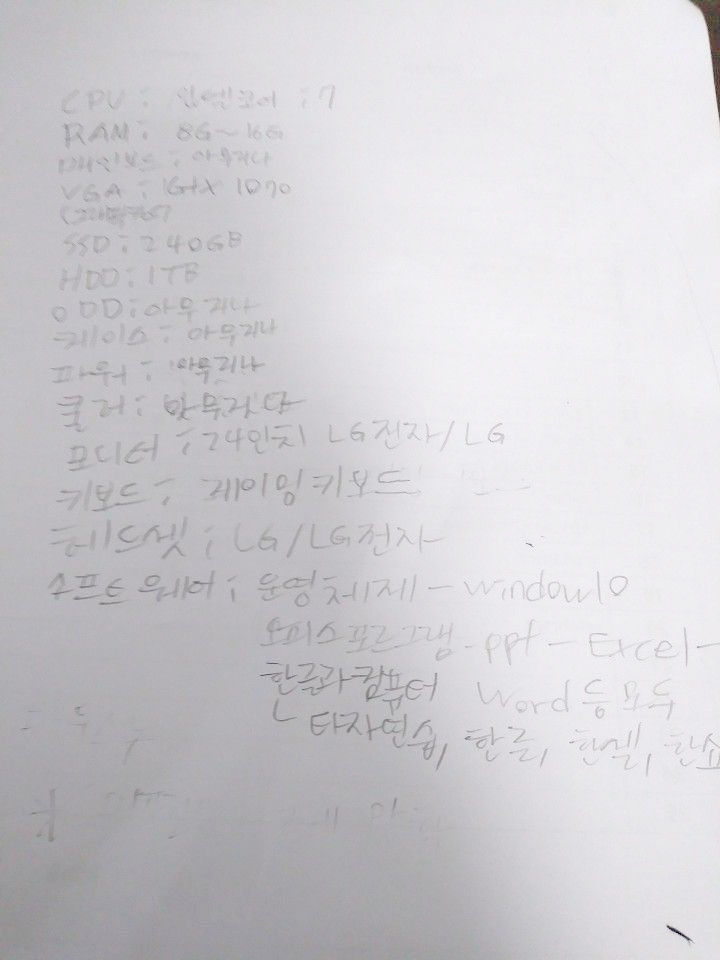 CPU : 인텔코어 i7
RAM : 8G~16G
메인보드 : 아무거나
VGA : GTX 1070
(그래픽카드)
SSD : 240GB
HDD : 1TB
ODD : 아무거나
케이스 : 아무거나
파워 : 아무거나
쿨러 : 아무거나
모니터 : 24인치 LG전자/LG
키보드 : 게이밍키보드
헤드셋 : LG/LG전자
소프트웨어 : 운영체제 - window10
오피스프로그램 - ppt - Excel -
한글과컴퓨터 Word 등 모두
ㄴ 타자연습, 한글, 한셀, 한쇼